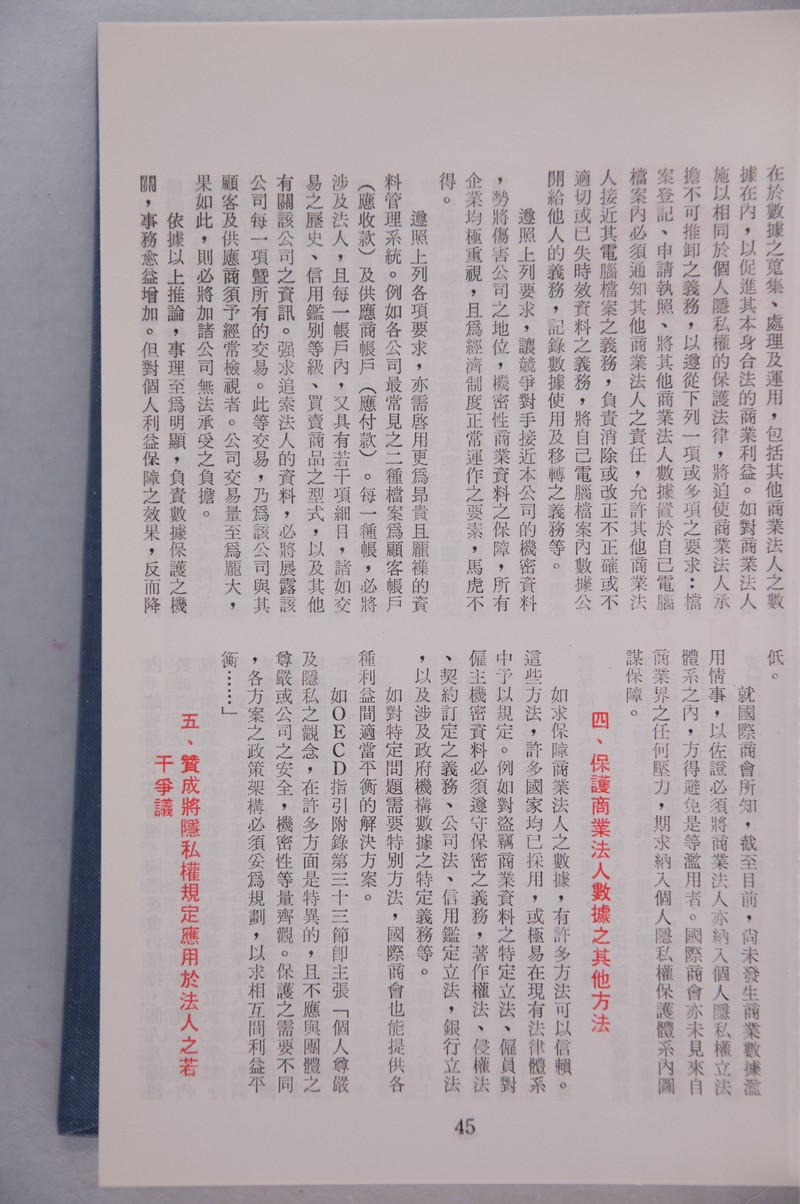 在於數據之蒐集、處理及運用，包括其他商業法人之數
據在內，以促進其本身合法的商業利益。如對商業法人
施以相同於個人隱私權的保護法律，將迫使商業法人承
擔不可推卸之義務，以遵從下列一項或多項之要求：檔
案登記、申請執照、將其他商業法人數據置於自己電腦
檔案內必須通知其他商業法人之責任，允許其他商業法
人接近其電腦檔案之義務，負責消除或改正不正確或不
適切或已失時效資料之義務，將自己電腦檔案內數據公
開給他人的義務，記錄數據使用及移轉之義務等。
遵照上列要求，讓競爭對手接近本公司的機密資料
，勢將傷害公司之地位，機密性商業資料之保障，所有
企業均極重視，且爲經濟制度正常運作之要素，馬虎不
得。
遵照上列各項要求，亦需啓用更爲昂貴且龐襍的資
料管理系統。例如各公司最常見之二種檔案爲顧客帳戶
（應收款）及供應商帳戶（應付款）。每一種帳，必將
涉及法人，且每一帳戶內，又具有若干項細目，諸如交
易之歷史、信用鑑別等級、買賣商品之型式，以及其他
有關該公司之資訊。强求追索法人的資料，必將展露該
公司每一項暨所有的交易。此等交易，乃爲該公司與其
顧客及供應商須予經常檢視者。公司交易量至爲龐大，
果如此，則必將加諸公司無法承受之負擔。
依據以上推論，事理至爲明顯，負責數據保護之機
關，事務愈益增加。但對個人利益保障之效果，反而降
低。
就國際商會所知，截至目前，尚未發生商業數據濫
用情事，以佐證必須將商業法人亦納入個人隱私權立法
體系之內，方得避免是等濫用者。國際商會亦未見來自
商業界之任何壓力，期求納入個人隱私權保護體系內圖
謀保障。
四、保護商業法人數據之其他方法
如求保障商業法人之數據，有許多方法可以信賴。
這些方法，許多國家均已採用，或極易在現有法律體系
中予以規定。例如對盜竊商業資料之特定立法、僱員對
僱主機密資料必須遵守保密之義務，著作權法、侵權法
、契約訂定之義務、公司法、信用鑑定立法，銀行立法
，以及涉及政府機構數據之特定義務等。
如對特定問題需要特別方法，國際商會也能提供各
種利益間適當平衡的解決方案。
如ＯＥＣＤ指引附錄第三十三節即主張「個人尊嚴
及隱私之觀念，在許多方面是特異的，且不應與團體之
尊嚴或公司之安全，機密性等量齊觀。保護之需要不同
，各方案之政策架構必須妥爲規劃，以求相互間利益平
衡……」
五、贊成將隱私權規定應用於法人之若
干爭議
45